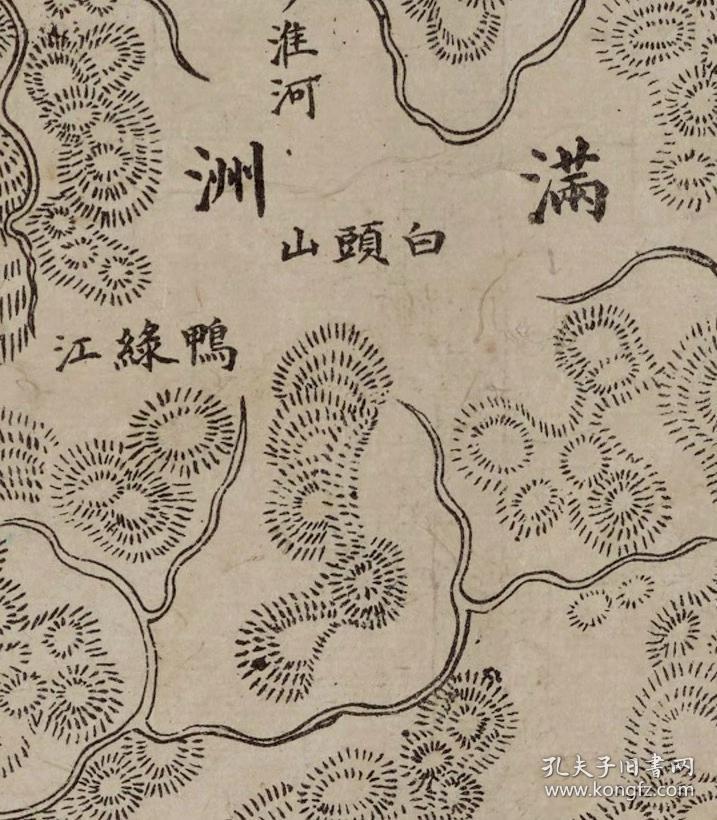 淮河
滿洲
白頭山
鴨綠江
孔夫子旧書网
www.kongfz.com